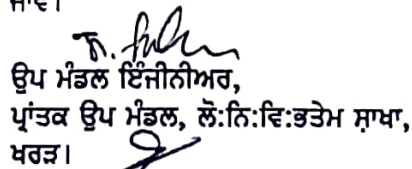 ਜਾਵੇ।
ਉਪ ਮੰਡਲ ਇੰਜੀਨੀਅਰ,
ਪ੍ਰਾਂਤਕ ਉਪ ਮੰਡਲ, ਲੋ:ਨਿ:ਵਿ:ਭਤੇਮ ਸ਼ਾਖਾ,
ਖਰੜ।